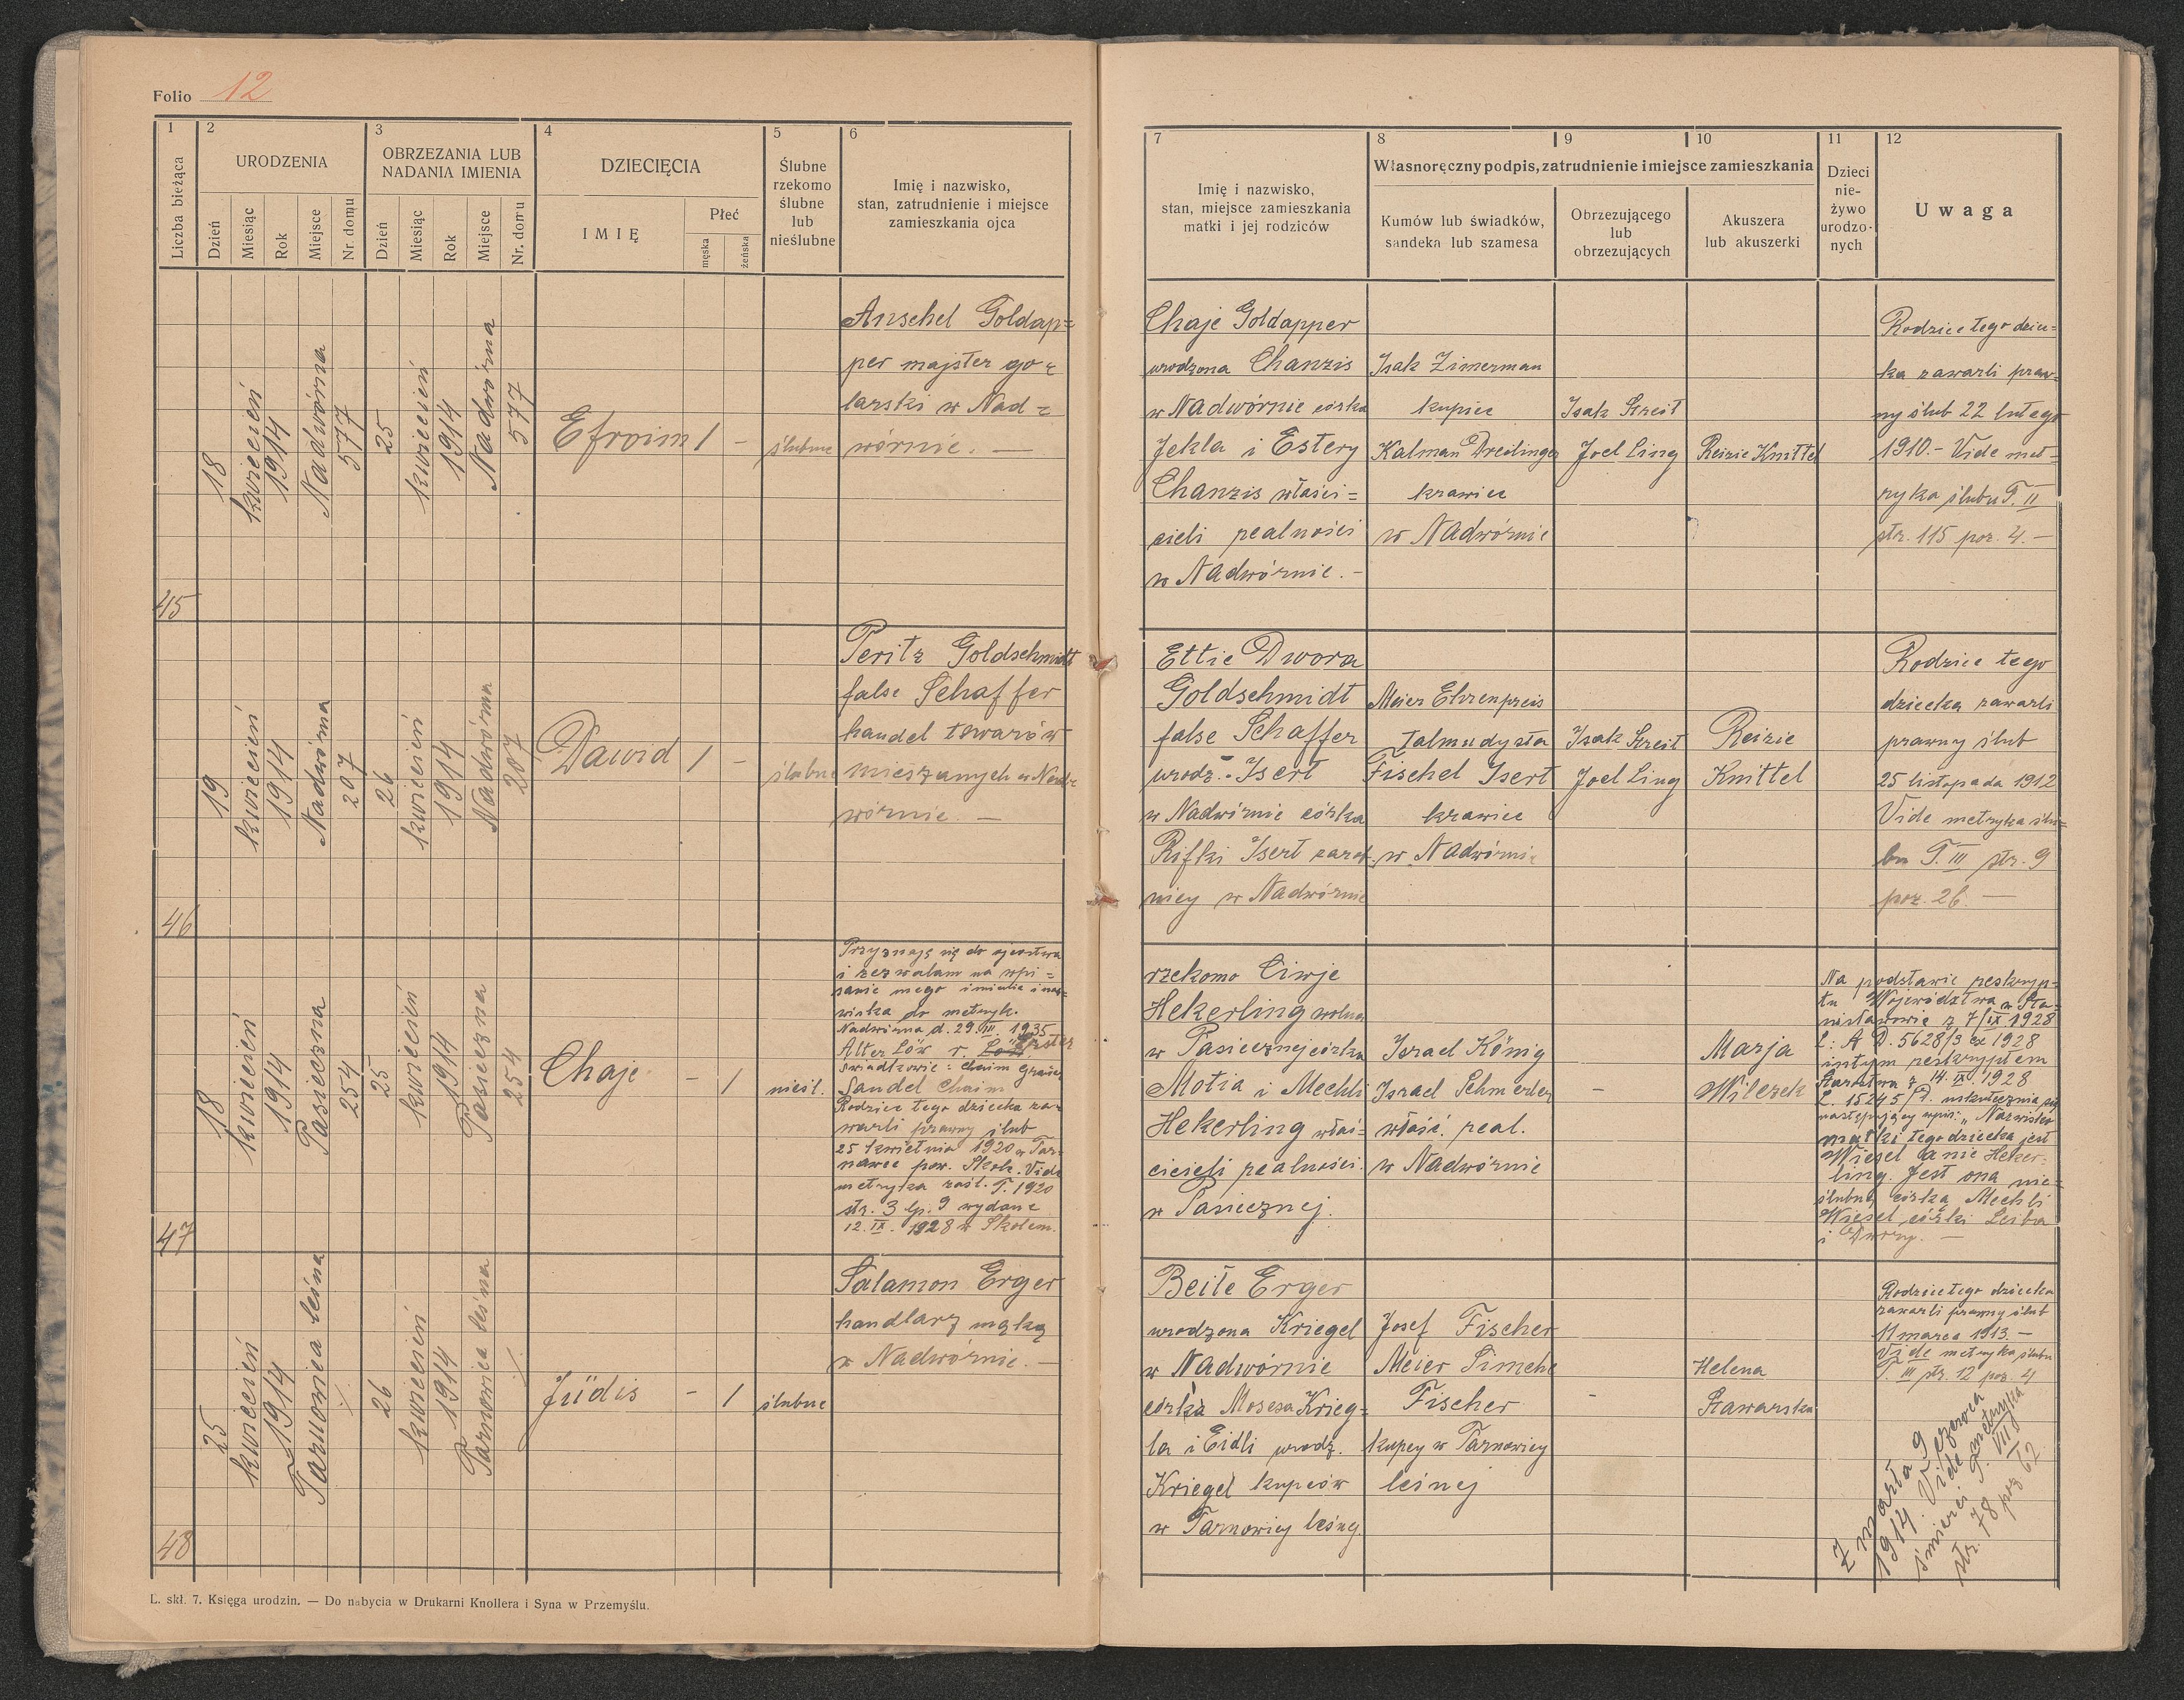 Folio 12
1
2
3
4
5
6
Liczba bieżąca
URODZENIA
OBRZEZANIA LUB
NADANIA IMIENIA
DZIECIĘCIA
Ślubne
rzekomo
ślubne
lub
nieślubne
Imię i nazwisko,
stan, zatrudnienie i miejsce
zamieszkania ojca
Dzień
Miesiąc
Rok
Miejsce
Nr. domu
Dzień
Miesiąc
Rok
Miejsce
Nr. domu
IMIĘ
Płeć
męska
żeńska
7
8
9
10
11
12
Imię i nazwisko,
stan, miejsce zamieszkania
matki i jej rodziców
Własnoręczny podpis, zatrudnienie i miejsce zamieszkania
Kumów lub świadków,
sandeka lub szamesa
Obrzezującego
lub
obrzezujących
Akuszera
lub akuszerki
Dzieci
nie-
żywo
urodzo-
nych
Uwaga
45
18
kwiecień
1914
Nadwórna
577
25
kwiecień
1914
Nadwórna
577
Efroim
1
-
ślubne
Anschel Goldap=
per majster go=
larski w Nad=
wórnie. —
Chaje Goldapper
urodzona Chanzis
w Nadwórnie córka
Jekla i Estery
Chanzis właści=
cieli realności
w Nadwórnie. -
Isak Zimerman
kupiec
Kalman Dreilinger
krawiec
w Nadwórnie
Isak Streit
Joel Ling
Reizie Knittel
Rodzice tego dziec=
ka zawarli praw=
ny ślub 22 lutego
1910.- Vide met=
ryka ślubu T. II
str. 115 poz. 4. -
46
19
kwiecień
1914
Nadwórna
207
26
kwiecień
1914
Nadwórna
207
Dawid
1
-
ślubne
Peritz Goldschmidt
false Schaffer
handel towarów
mieszanych w Nad=
wórnie. —
Ettie Dwora
Goldschmidt
false Schaffer
urodz. Isert
w Nadwórnie córka
Rifki Isert zarob
nicy w Nadwórnie
Meier Ehrenpreis
Talmudysta
Fischel Isert
krawiec
w Nadwórnie
Isak Streit
Joel Ling
Reizie
Knittel
Rodzice tego
dziecka zawarli
prawny ślub
25 listopada 1912
Vide metryka ślu=
bu T. III str. 9
poz. 26. —
47
18
kwiecień
1914
Pasieczna
254
25
kwiecień
1914
Pasieczna
254
Chaje
-
1
nieśl.
Przyznaję się do ojcostwa
i zezwalam na wpi=
sanie mego imienia i naz=
wiska do metryk.
Nadwórna d. 29. III. 1935
Alter Löw r.
Świadkowie: Chaim
Sandel Chaim
Rodzice tego dziecka za=
warli prawny ślub
25 kwietnia 1920 w Tar=
nawce pow. Skole. Vide
metryka zaśl. T. 1920
str. 3 lp. 9 wydane
12. IX. 1928 w Skolem.
rzekomo Ciwje
Hekerling wolna
w Pasiecznej córka
Motia i Mechli
Hekerling właś=
cicieli realności
w Pasiecznej.
Israel König
Israel Schmerler
właść. real.
w Nadwórnie
-
Marja
Wilczek
Na podstawie reskryp=
tu Województwa w Sta=
nisławowie z 7/IX 1928
L: A D. 5628/3 ex 1928
intym reskryptem
Starostwa z 14. IX. 1928
L. 15245/D. uskutecznia się
następujący wpis: „Nazwisko
matki tego dziecka jest
Wiesel a nie Heker=
ling. Jest ona nie=
ślubną córką Mechli
Wiesel córki Leiba
i Dwory. —
48
25
kwiecień
1914
Tarnowica leśna
26
kwiecień
1914
Tarnowica leśna
Jüdis
-
1
ślubne
Salamon Erger
handlarz mąką
w Nadwórnie. —
Beile Erger
urodzona Kriegel
w Nadwórnie
córka Mosesa Krieg=
la i Eidli urodz.
Kriegel kupców
w Tarnowicy leśnej.
Josef Fischer
Meier Simche
Fischer
kupcy w Tarnowicy
leśnej
-
Helena
Stawarska
Rodzice tego dziecka
zawarli prawny ślub
11 marca 1913. -
Vide metryka ślubu
T. III str. 12 poz. 4
Zmarła 9 czerwca
1914. Vide metryka
śmierci T. VII
str. 78 poz 62
L. skł. 7. Księga urodzin. — Do nabycia w Drukarni Knollera i Syna w Przemyślu.